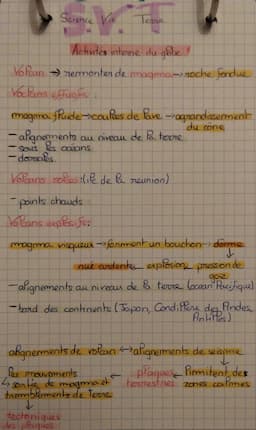 S.V.T
Science Vie Terre
Activités interne du globe
Volcan → remonter de magma → roche fondue
Volcans effusifs :
magma fluide → coulées de lave → agrandissement
du cone
- alignements au niveau de la terre
- sous les océans
- dorsales.
Volcans isolés : (île de la reunion)
- points chauds
Volcans explosifs :
magma visqueux → forment un bouchon → dôme
nuée ardente explosion pression de
gaz
- alignements au niveau de la terre (océan Pacifique)
- bord des continents (Japon, Cordillère des Andes,
Antilles)
alignements de volcan ↔ alignements de seisme
les mouvements ← plaques ← limitent des
↳ sortie de magma et terrestres zones calmes
tremblements de terre
↓
tectoniques
des plaques